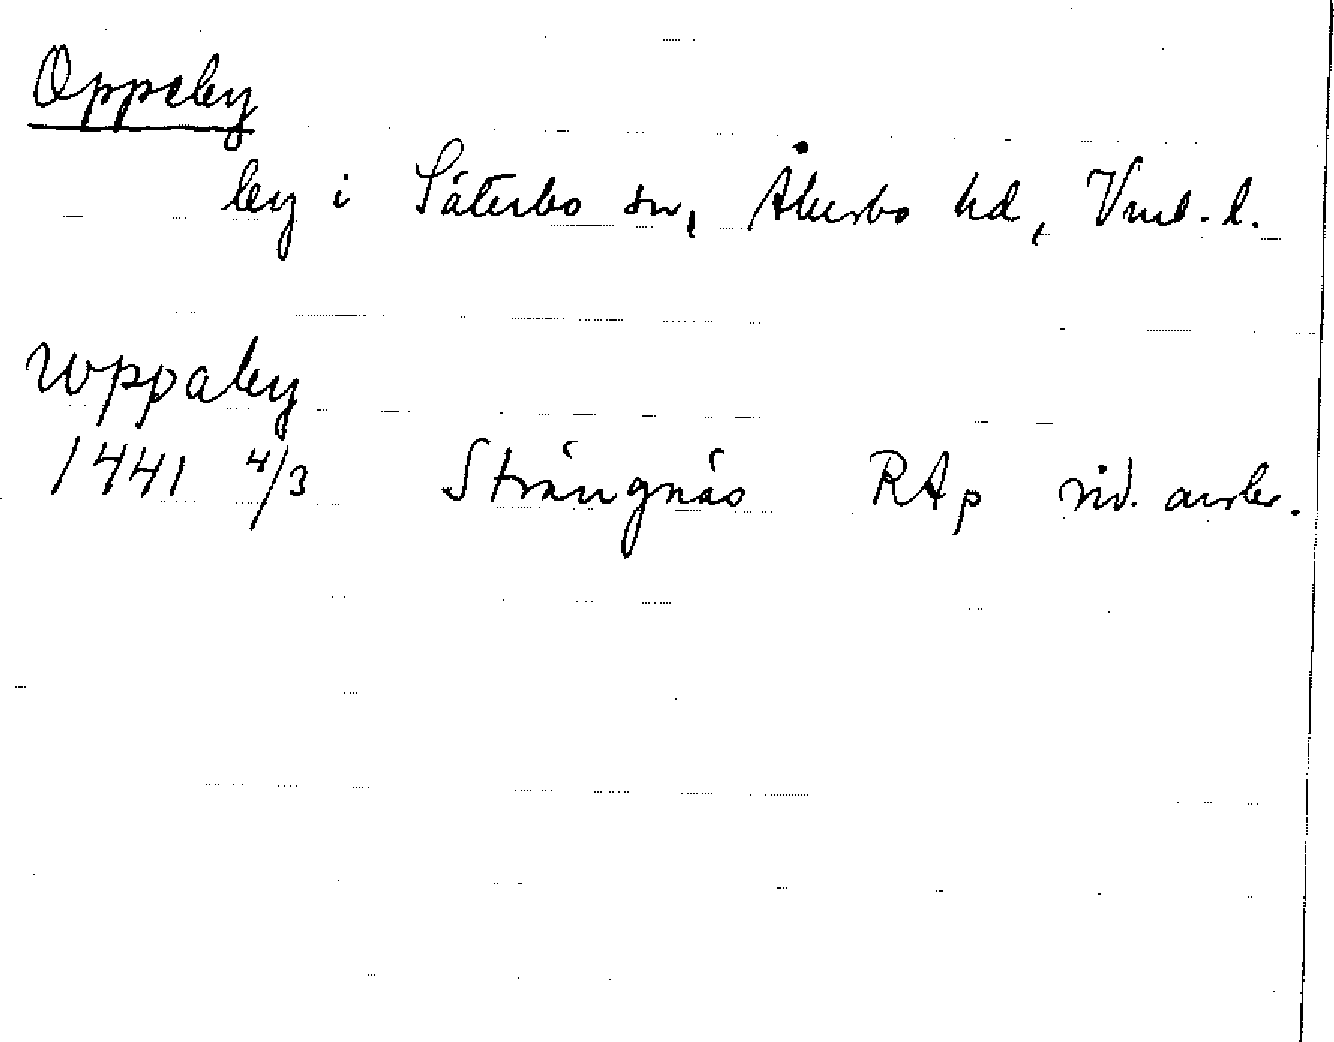 Oppeby
by i Säterbo sn, Åkerbo hd, Vml. l.
wppaby
1441 4/3 Strängnäs RAp vid. avskr.